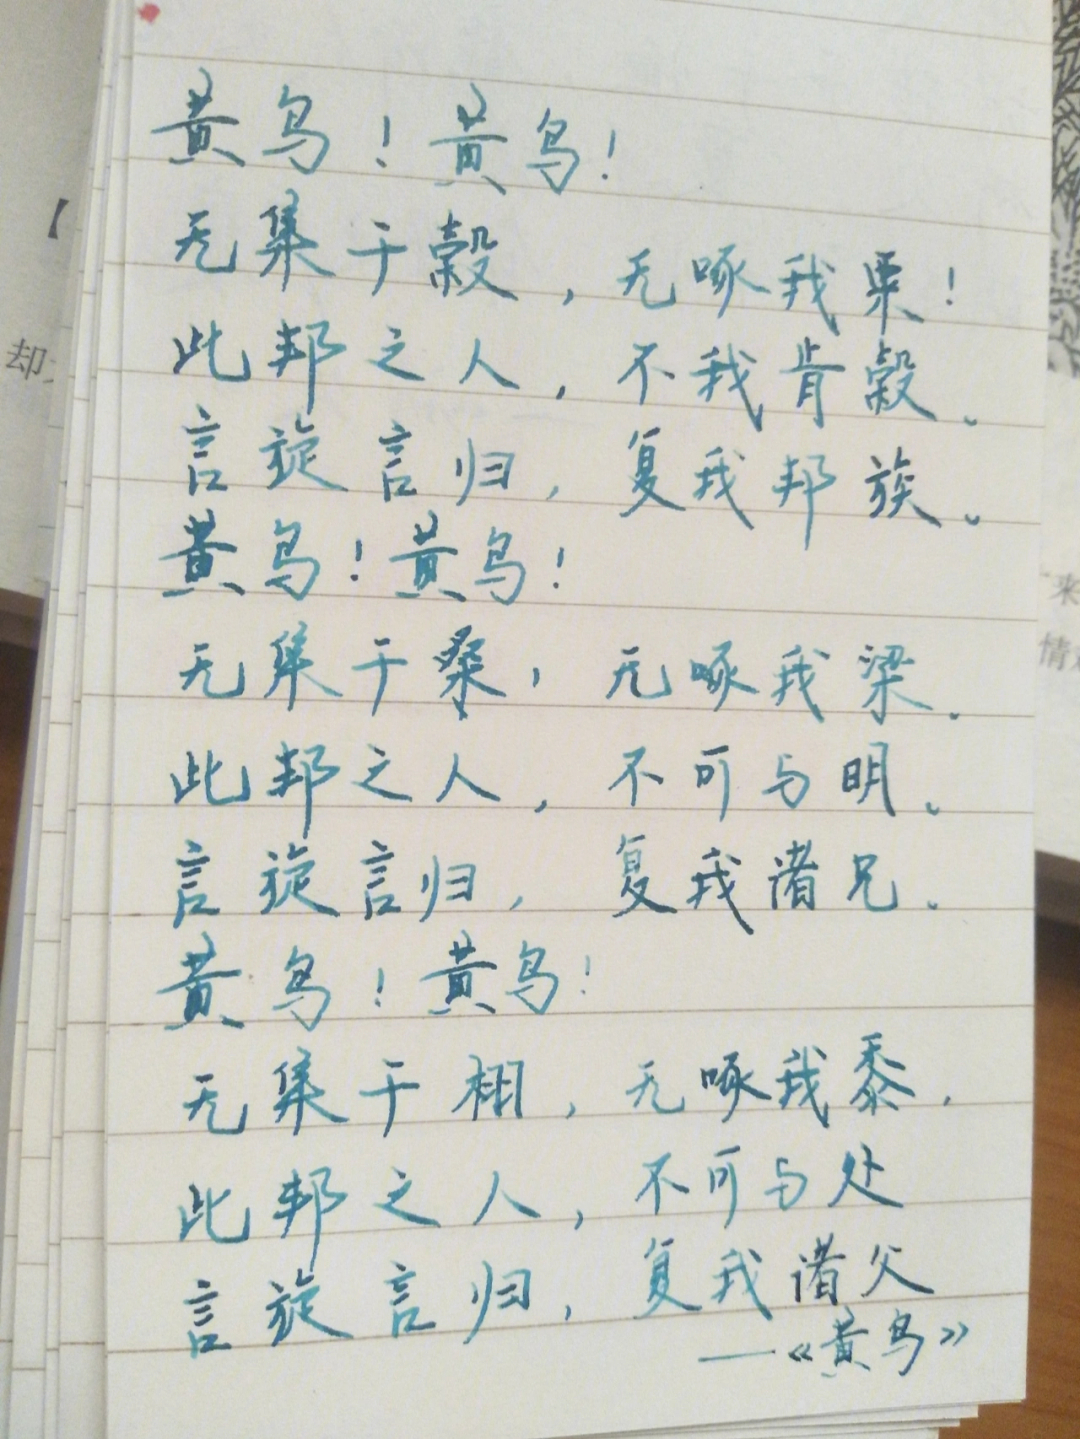 黄鸟！黄鸟！
无集于榖，无啄我粟！
此邦之人，不我肯榖。
言旋言归，复我邦族。
黄鸟！黄鸟！
无集于桑，无啄我梁。
此邦之人，不可与明。
言旋言归，复我诸兄。
黄鸟！黄鸟！
无集于相，无啄我黍，
此邦之人，不可与处
言旋言归，复我诸父
——《黄鸟》
【
却
来
情